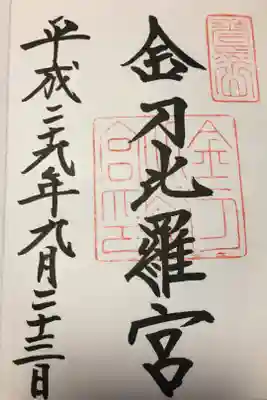 金刀比羅宮
平成二十九年九月二十三日